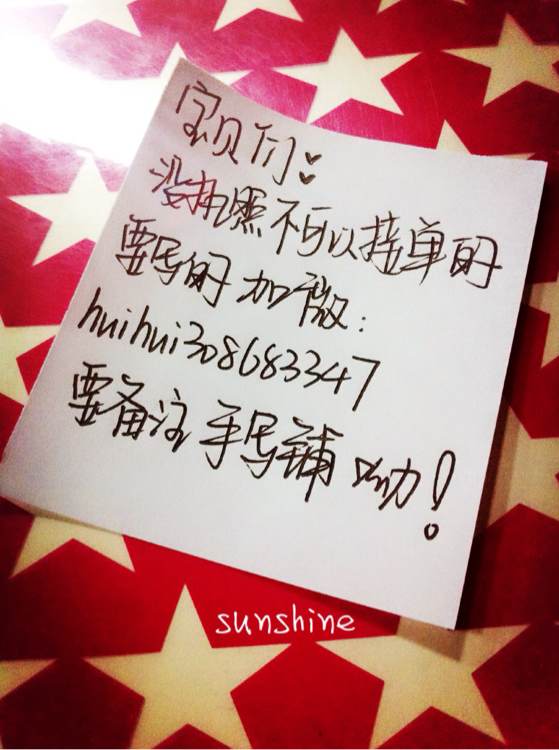 宝贝们：
没执照不可以接单的
要写的加微：
huihui308683347
要备注手写铺呦！
sunshine